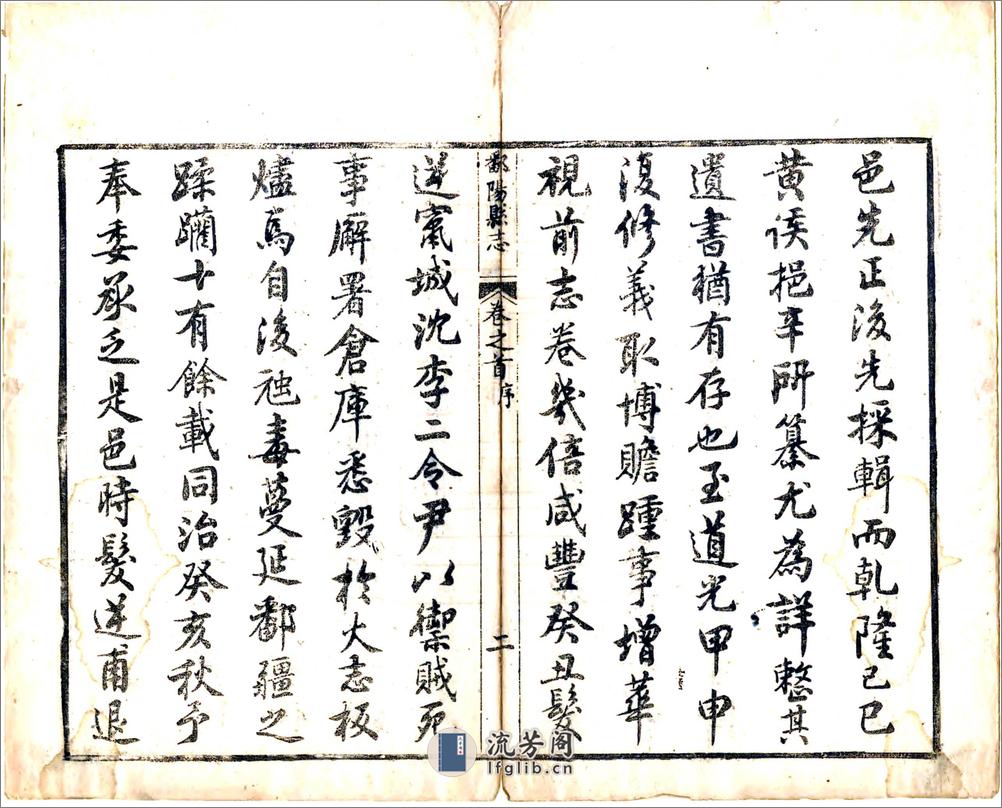 邑先正後先採輯而乾隆己巳
黃侯挹辛所纂尤為詳整其
遺書猶有存也至道光甲申
復修義取博贍踵事增華
視前志卷幾倍咸豐癸丑髮
鄱陽縣志 卷之首序 二
逆竄城沈李二令尹以禦賊死
事廨署倉庫悉毀於大志板
燼焉自後祂毒蔓延鄱疆之
蹂躪十有餘載同治癸亥秋予
奉委承乏是邑時髮逆甫退
流芳阁
lfglib.cn